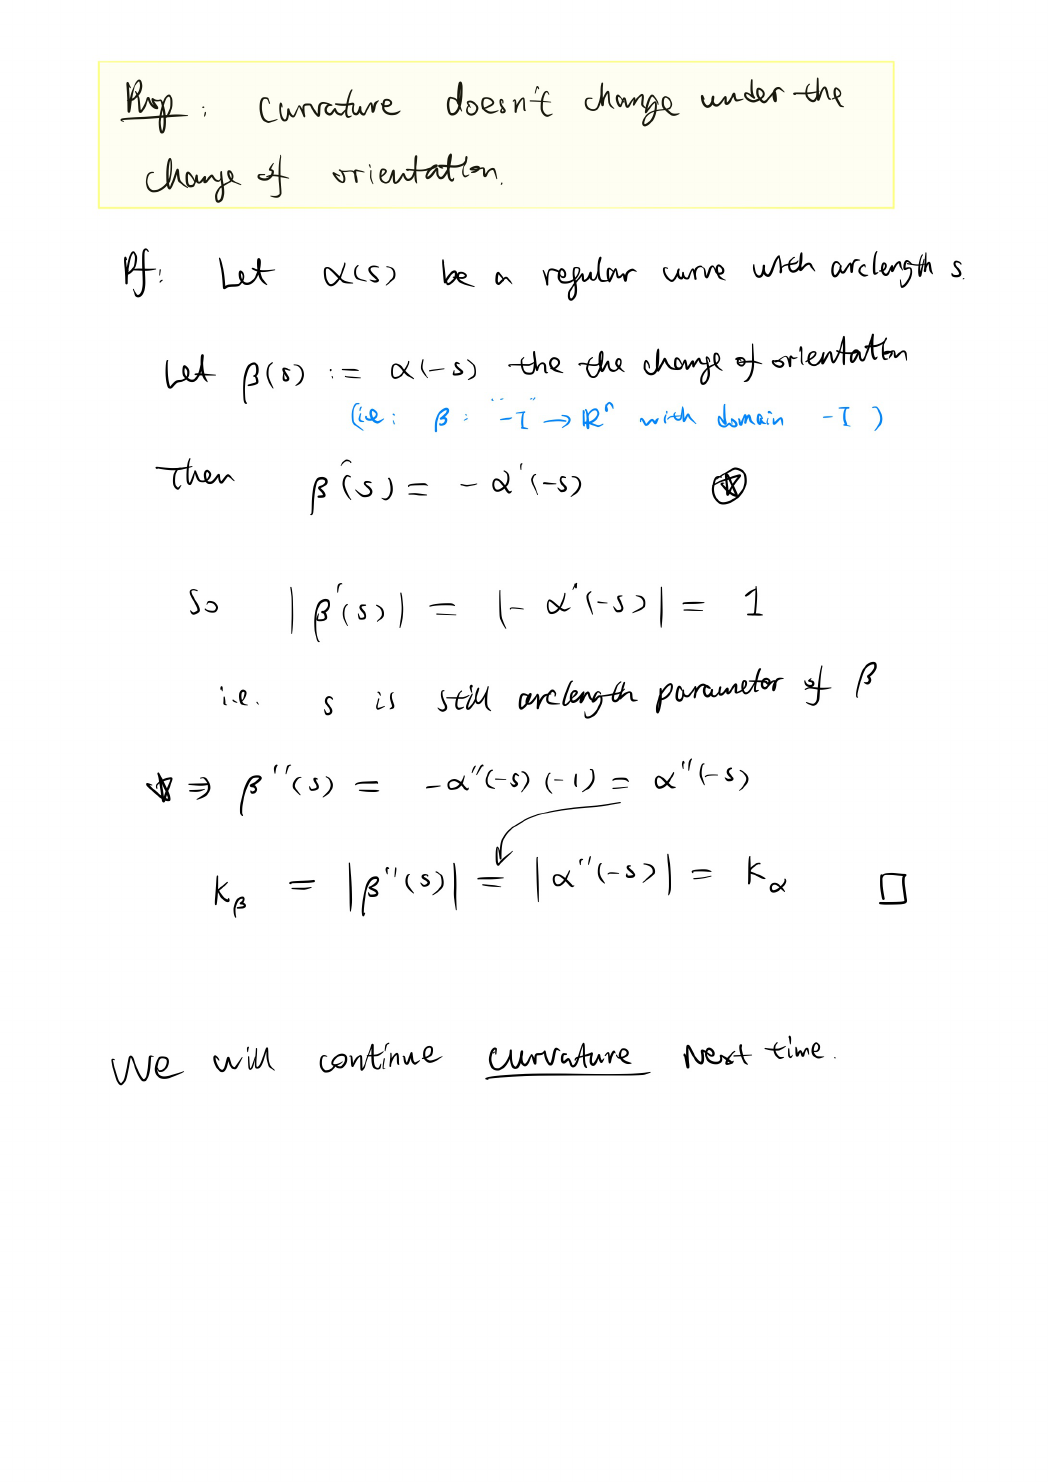 Prop: Curvature doesn't change under the
change of orientation.
Pf: Let α(s) be a regular curve with arclength s.
Let β(s) := α(-s) the the change of orientation
(ie: β: "-I" → ℝⁿ with domain -I)
Then β'(s) = -α'(-s) ⍟
So |β'(s)| = |-α'(-s)| = 1
i.e. s is still arclength parameter of β
☆ ⇒ β''(s) = -α''(-s)(-1) = α''(-s)
k_β = |β''(s)| = |α''(-s)| = k_α □
We will continue curvature Next time.